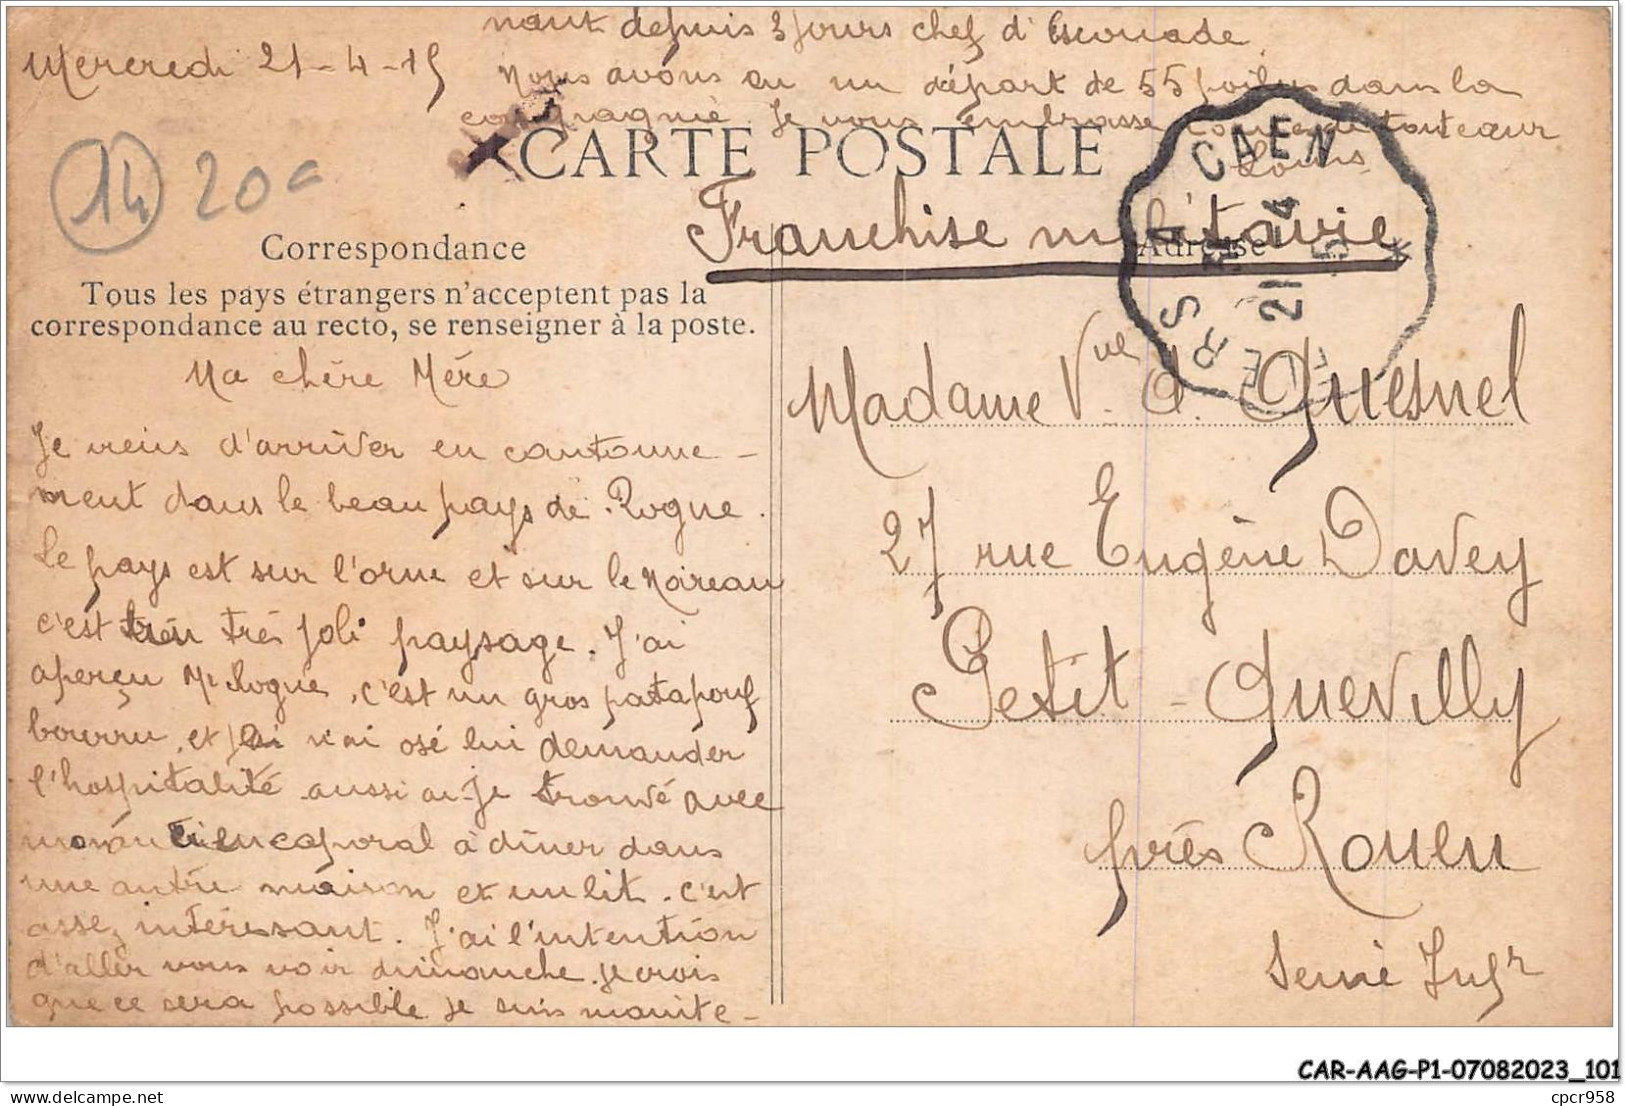 Mercredi 21-4-15
14 20c
CARTE POSTALE
Franchise militaire
Correspondance
Adresse
Tous les pays étrangers n'acceptent pas la
correspondance au recto, se renseigner à la poste.
Ma chère Mère
Je viens d'arriver en cantonne-
ment dans le beau pays de Rogue.
Le pays est sur l'orne et sur le Noireau
c'est très joli paysage. J'ai
aperçu Mr Rogue, c'est un gros patapouf
bourru, et n'ai osé lui demander
l'hospitalité aussi ai-je trouvé avec
mon ancien caporal à dîner dans
une autre maison et un lit. C'est
assez intéressant. J'ai l'intention
d'aller vous voir dimanche. je crois
que ce sera possible je suis mainte-
nant depuis 3 jours chef d'Escouade.
Nous avons eu un départ de 55 poilus dans la
compagnie. Je vous embrasse de tout cœur
Louis
CAEN
21-4
Madame Vve A. Quesnel
27 rue Eugène Davey
Petit-Quevilly
près Rouen
Seine Infr
CAR-AAG-P1-07082023_101
cpcr958